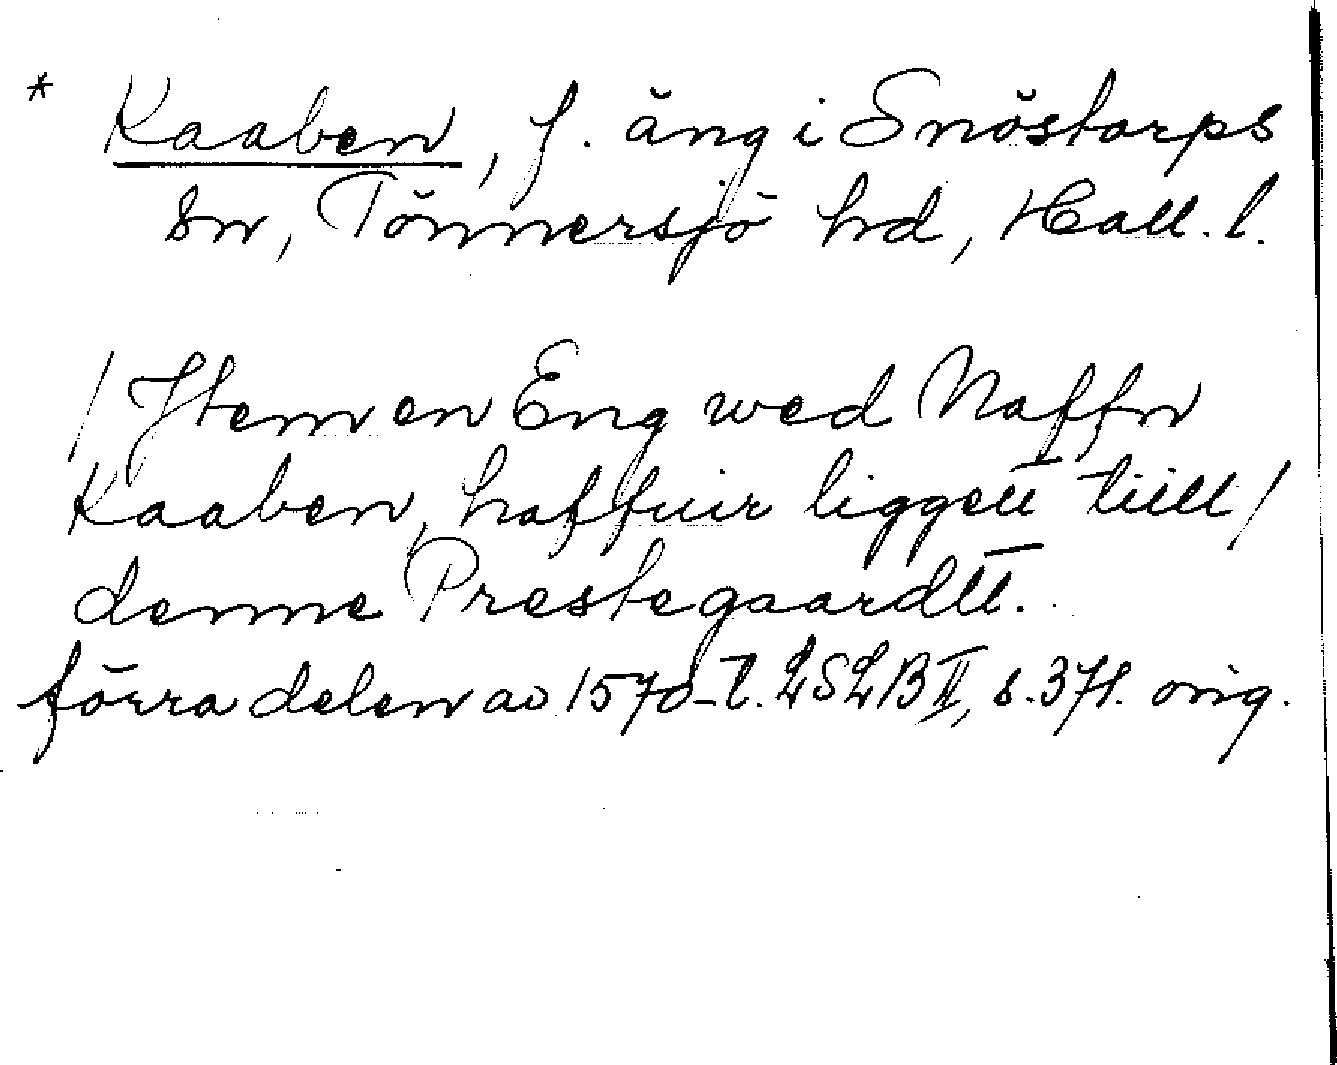 * Kaaben, f. äng i Snöstorps
sn, Tönnersjö hd, Hall. l.
/Jtem en Eng wed Naffn
Kaaben, haffuir liggett tiill/
denne Prestegaardtt.
förra delen av 1570-t. LSLB II, s. 371. orig.